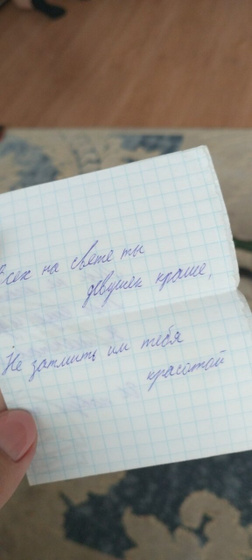 Всех на свете ты
девушек краше,
Не затмить им тебя
красотой